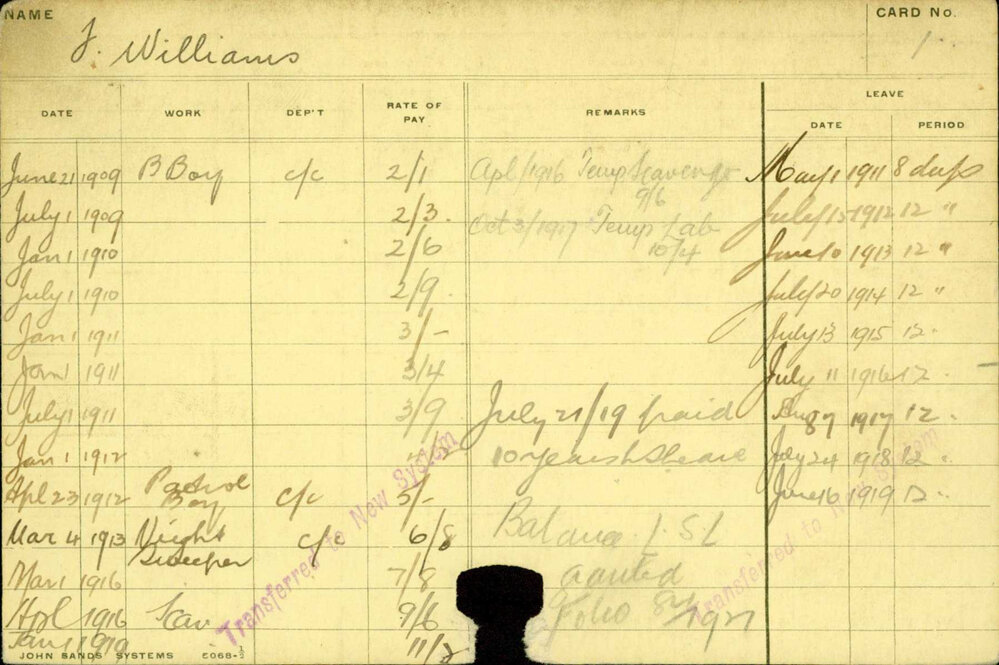 NAME
J. Williams
CARD No.
1
DATE WORK DEP'T RATE OF PAY REMARKS LEAVE
DATE PERIOD
June 21 1909 B Boy c/c 2/1 Apl/1916 Temp Scavenger May 1 1911 8 days
9/6
July 1 1909 2/3. Oct 3/1917 Temp Lab July 15 1912 12 "
Jan 1 1910 2/6 10/4 June 10 1913 12 "
July 1 1910 2/9. July 20 1914 12 "
Jan 1 1911 3/- July 13 1915 12.
Jan 1 1911 3/4 July 11 1916 12.
July 1 1911 3/9 July 21/19 paid 1917 12.
Jan 1 1912 10 years L Leave July 24 1918 12.
Apl 23 1912 Patrol Boy c/c 5/- June 16 1919 12.
Mar 4 1913 Night Sweeper c/c 6/8 Balance L S L
Mar 1 1916 7/8 granted
Apl 1916 Scav 9/6 Folio 1921
Jan 1 1919 11/
Transferred to New System
Transferred to New System
JOHN SANDS SYSTEMS 5068-½